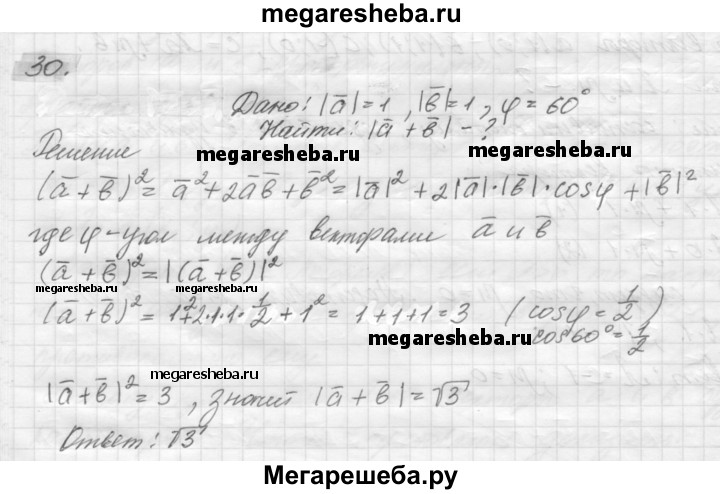 megaresheba.ru
30.
Дано: |a̅|=1, |b̅|=1, φ=60°
Найти: |a̅+b̅|-?
Решение
megaresheba.ru megaresheba.ru
(a̅+b̅)²=a̅²+2a̅b̅+b̅²=|a̅|²+2|a̅|·|b̅|·cosφ+|b̅|²
где φ-угол между векторами a̅ и b̅
(a̅+b̅)²=|(a̅+b̅)|²
megaresheba.ru megaresheba.ru
(a̅+b̅)²=1²+2·1·1·1/2+1²=1+1+1=3 (cosφ=1/2)
megaresheba.ru cos60°=1/2
megaresheba.ru
|a̅+b̅|²=3, значит |a̅+b̅|=√3
Ответ: √3
Мегарешеба.ру